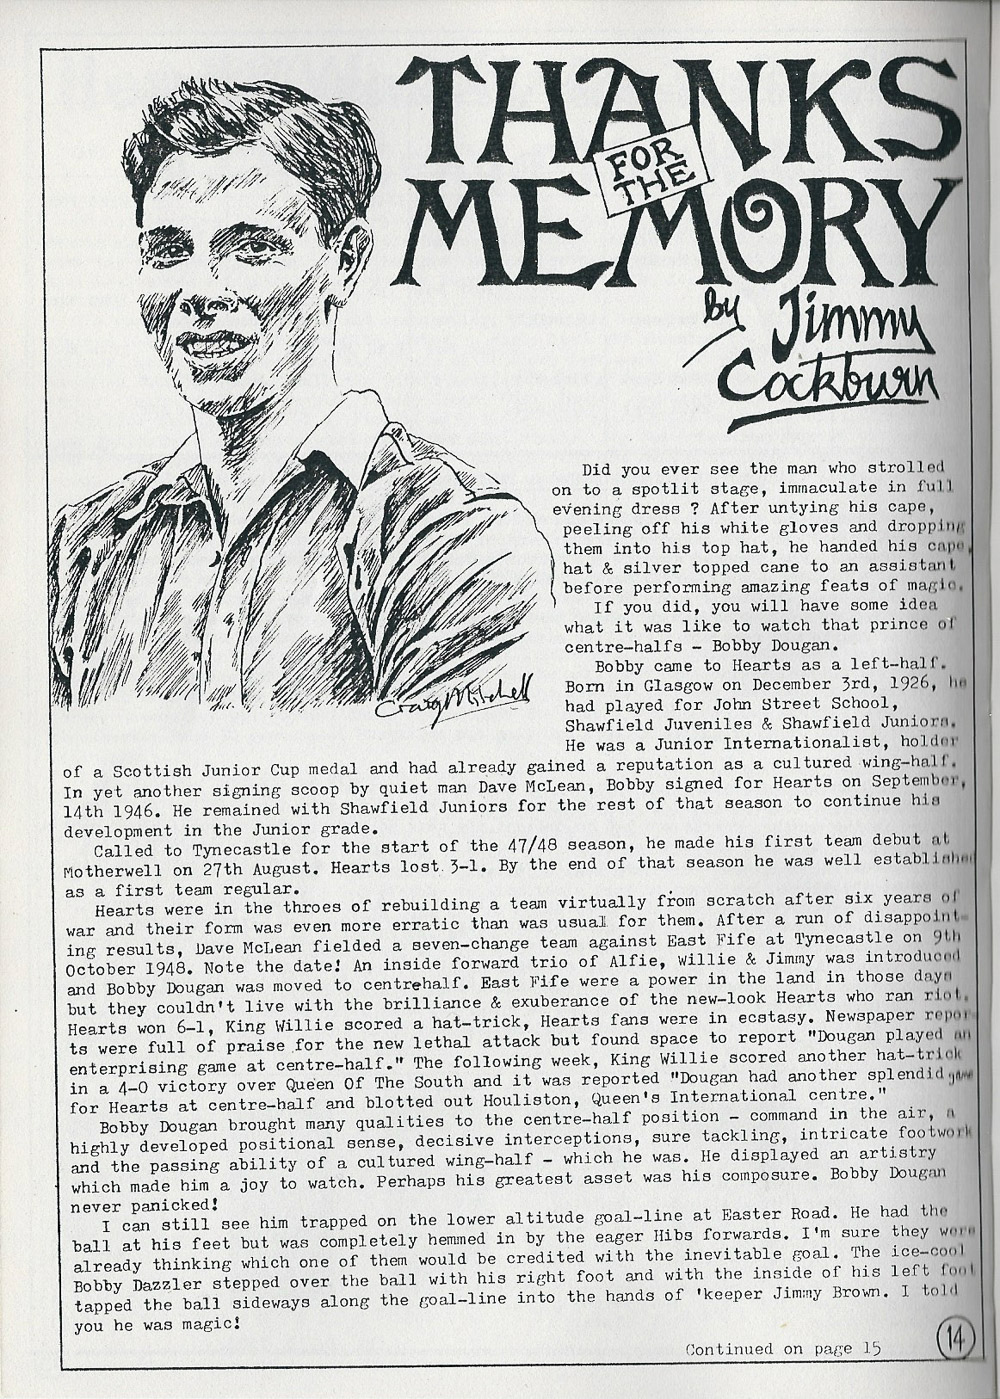 THANKS
FOR
THE
MEMORY
by Jimmy
Cockburn
Craig Mitchell
Did you ever see the man who strolled
on to a spotlit stage, immaculate in full
evening dress ? After untying his cape,
peeling off his white gloves and dropping
them into his top hat, he handed his cape,
hat & silver topped cane to an assistant
before performing amazing feats of magic.
If you did, you will have some idea
what it was like to watch that prince of
centre-halfs - Bobby Dougan.
Bobby came to Hearts as a left-half.
Born in Glasgow on December 3rd, 1926, he
had played for John Street School,
Shawfield Juveniles & Shawfield Juniors.
He was a Junior Internationalist, holder
of a Scottish Junior Cup medal and had already gained a reputation as a cultured wing-half.
In yet another signing scoop by quiet man Dave McLean, Bobby signed for Hearts on September,
14th 1946. He remained with Shawfield Juniors for the rest of that season to continue his
development in the Junior grade.
Called to Tynecastle for the start of the 47/48 season, he made his first team debut at
Motherwell on 27th August. Hearts lost 3-1. By the end of that season he was well established
as a first team regular.
Hearts were in the throes of rebuilding a team virtually from scratch after six years of
war and their form was even more erratic than was usual for them. After a run of disappoint-
ing results, Dave McLean fielded a seven-change team against East Fife at Tynecastle on 9th
October 1948. Note the date! An inside forward trio of Alfie, Willie & Jimmy was introduced
and Bobby Dougan was moved to centrehalf. East Fife were a power in the land in those days
but they couldn't live with the brilliance & exuberance of the new-look Hearts who ran riot.
Hearts won 6-1, King Willie scored a hat-trick, Hearts fans were in ecstasy. Newspaper repor-
ts were full of praise for the new lethal attack but found space to report "Dougan played an
enterprising game at centre-half." The following week, King Willie scored another hat-trick
in a 4-0 victory over Queen Of The South and it was reported "Dougan had another splendid game
for Hearts at centre-half and blotted out Houliston, Queen's International centre."
Bobby Dougan brought many qualities to the centre-half position - command in the air, a
highly developed positional sense, decisive interceptions, sure tackling, intricate footwork
and the passing ability of a cultured wing-half - which he was. He displayed an artistry
which made him a joy to watch. Perhaps his greatest asset was his composure. Bobby Dougan
never panicked!
I can still see him trapped on the lower altitude goal-line at Easter Road. He had the
ball at his feet but was completely hemmed in by the eager Hibs forwards. I'm sure they were
already thinking which one of them would be credited with the inevitable goal. The ice-cool
Bobby Dazzler stepped over the ball with his right foot and with the inside of his left foot
tapped the ball sideways along the goal-line into the hands of 'keeper Jimmy Brown. I told
you he was magic!
Continued on page 15
14